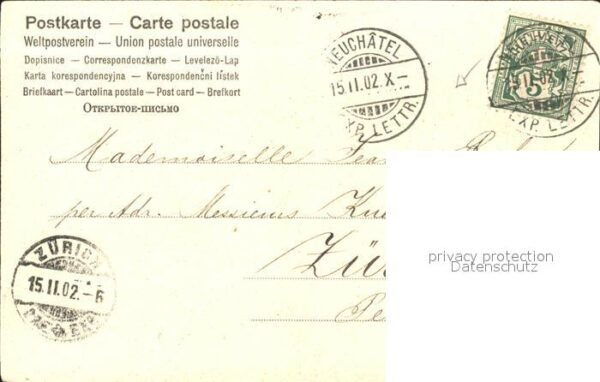 Postkarte — Carte postale
Weltpostverein — Union postale universelle
Dopisnice — Correspondenzkarte — Levelező-Lap
Karta korespondencyjna — Korespondenční lístek
Briefkaart — Cartolina postale — Post card — Brefkort
Открытое-письмо
NEUCHÂTEL
15.II.02.X–
EXP. LETTR.
NEUCHÂTEL
15.II.02
EXP. LETTR.
5
Mademoiselle
per Adr. Messieurs
ZÜRICH
15.II.02.–6
privacy protection
Datenschutz